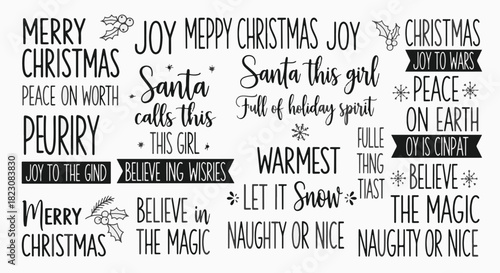 MERRY
CHRISTMAS
PEACE ON WORTH
PEURIRY
JOY TO THE GIND
MERRY
CHRISTMAS
JOY MEPPY CHRISTMAS JOY
Santa
calls this
THIS GIRL
BELIEVE ING WISRIES
BELIEVE in
THE MAGIC
Santa this girl
Full of holiday spirit
WARMEST
LET IT Snow
NAUGHTY OR NICE
FULLE
THNG
TIAST
CHRISTMAS
JOY TO WARS
PEACE
ON EARTH
OY IS CINPAT
BELIEVE
THE MAGIC
NAUGHTY OR NICE
Adobe Stock | #1823083830